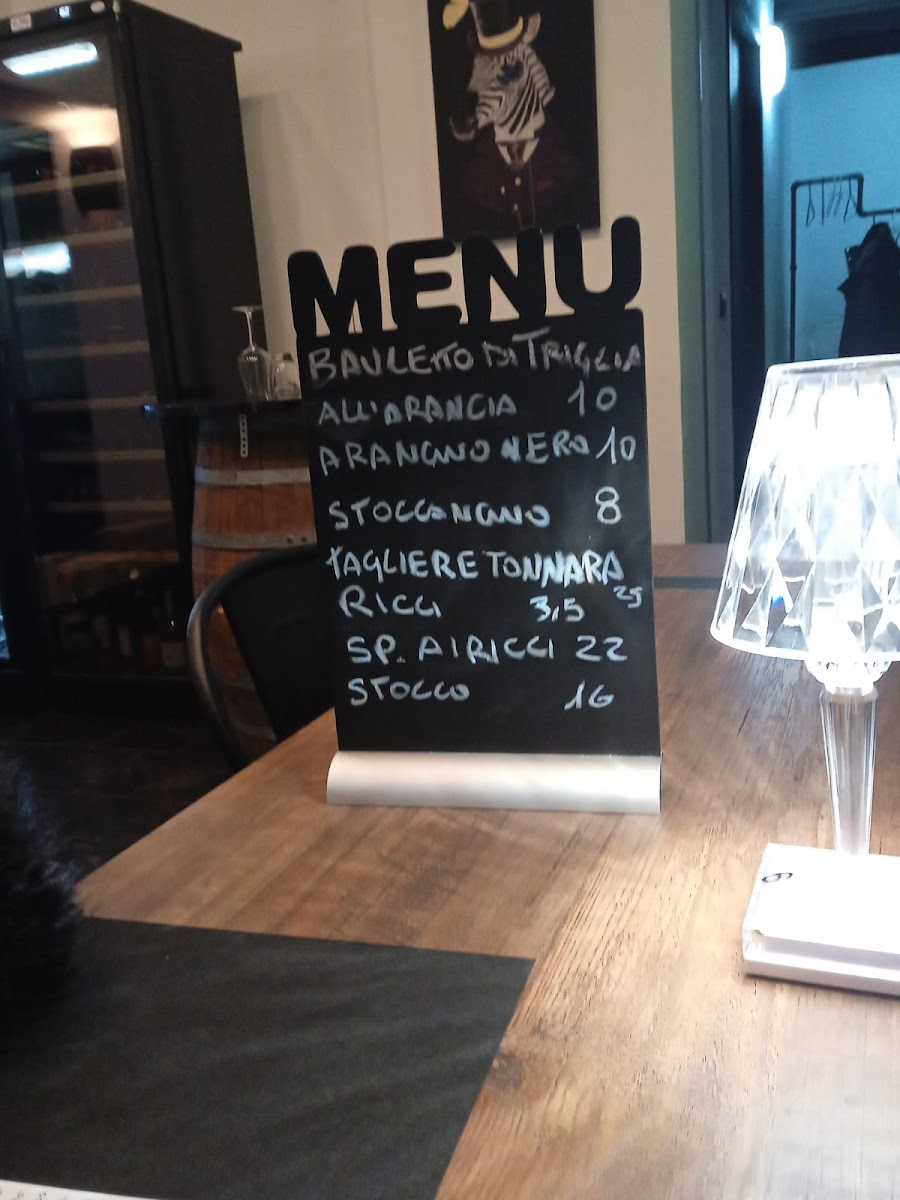 MENU
BAULETTO DI TRIGLIA
ALL'ARANCIA 10
ARANCINO NERO 10
STOCCONCINO 8
TAGLIERE TONNARA
25
RICCI 3,5
SP. AI RICCI 22
STOCCO 16
6